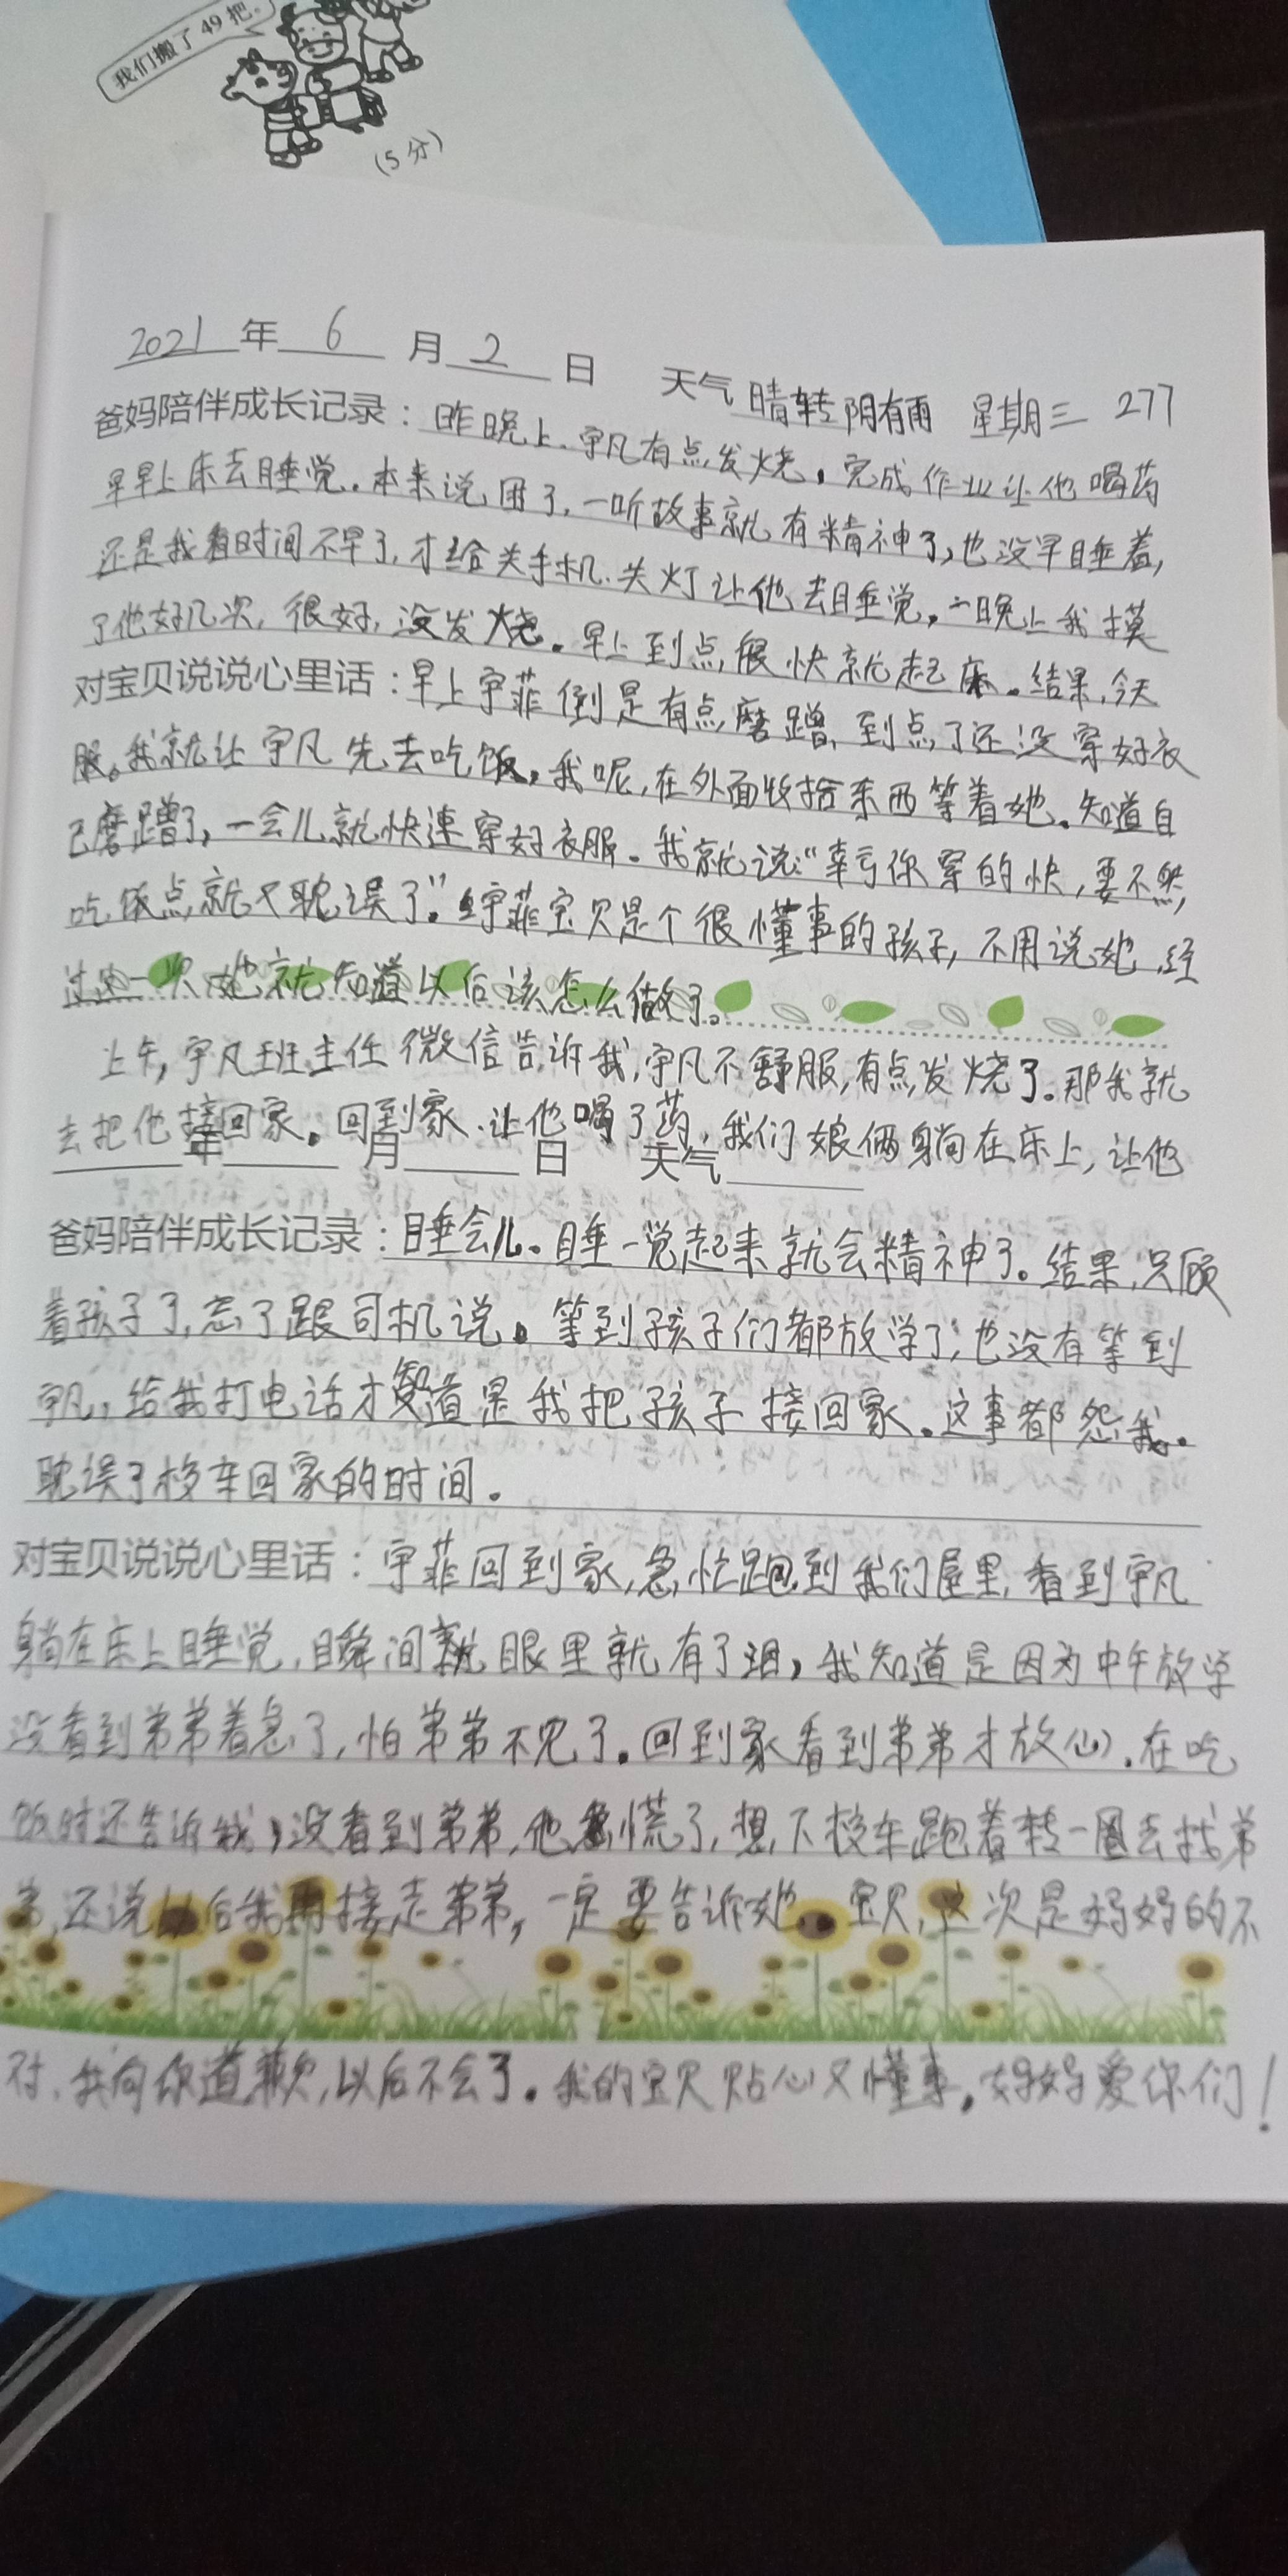 我们搬了49把。
(5分)
2021年6月2日 天气晴转阴有雨 星期三 277
爸妈陪伴成长记录：昨晚上.宇凡有点发烧。完成作业让他喝药
早早上床去睡觉.本来说困了,一听故事就有精神了,也没早睡着,
还是我看时间不早了,才给关手机.关灯让他去睡觉。一晚上我摸
了他好几次,很好,没发烧。早上到点很快就起床。结果,今天
对宝贝说说心里话：早上宇菲倒是有点磨蹭,到点了还没穿好衣
服。我就让宇凡先去吃饭,我呢,在外面收拾东西等着她。知道自
己磨蹭了,一会儿就快速穿好衣服。我就说:“幸亏你穿的快,要不然,
吃饭点就又耽误了”。宇菲宝贝是个很懂事的孩子,不用说她,经
过这一次她就知道以后该怎么做了。
上午,宇凡班主任微信告诉我,宇凡不舒服,有点发烧了.那我就
去把他接回家。回到家.让他喝了药,我们娘俩躺在床上,让他
年 月 日 天气
爸妈陪伴成长记录：睡会儿。睡一觉起来就会精神了。结果,只顾
着孩子了,忘了跟司机说。等到孩子们都放学了,也没有等到
宇凡,给我打电话才知道是我把孩子接回家。这事都怨我.
耽误了校车回家的时间。
对宝贝说说心里话：宇菲回到家,急忙跑到我们屋里,看到宇凡
躺在床上睡觉,瞬间就眼里就有了泪,我知道是因为中午放学
没看到弟弟着急了,怕弟弟不见了。回到家看到弟弟才放心.在吃
饭时还告诉我,没看到弟弟,他慌了,想下校车跑着转一圈去找弟
弟,还说以后我再接走弟弟,一定要告诉她。宝贝,这次是妈妈的不
对、我向你道歉,以后不会了。我的宝贝贴心又懂事,妈妈爱你们!